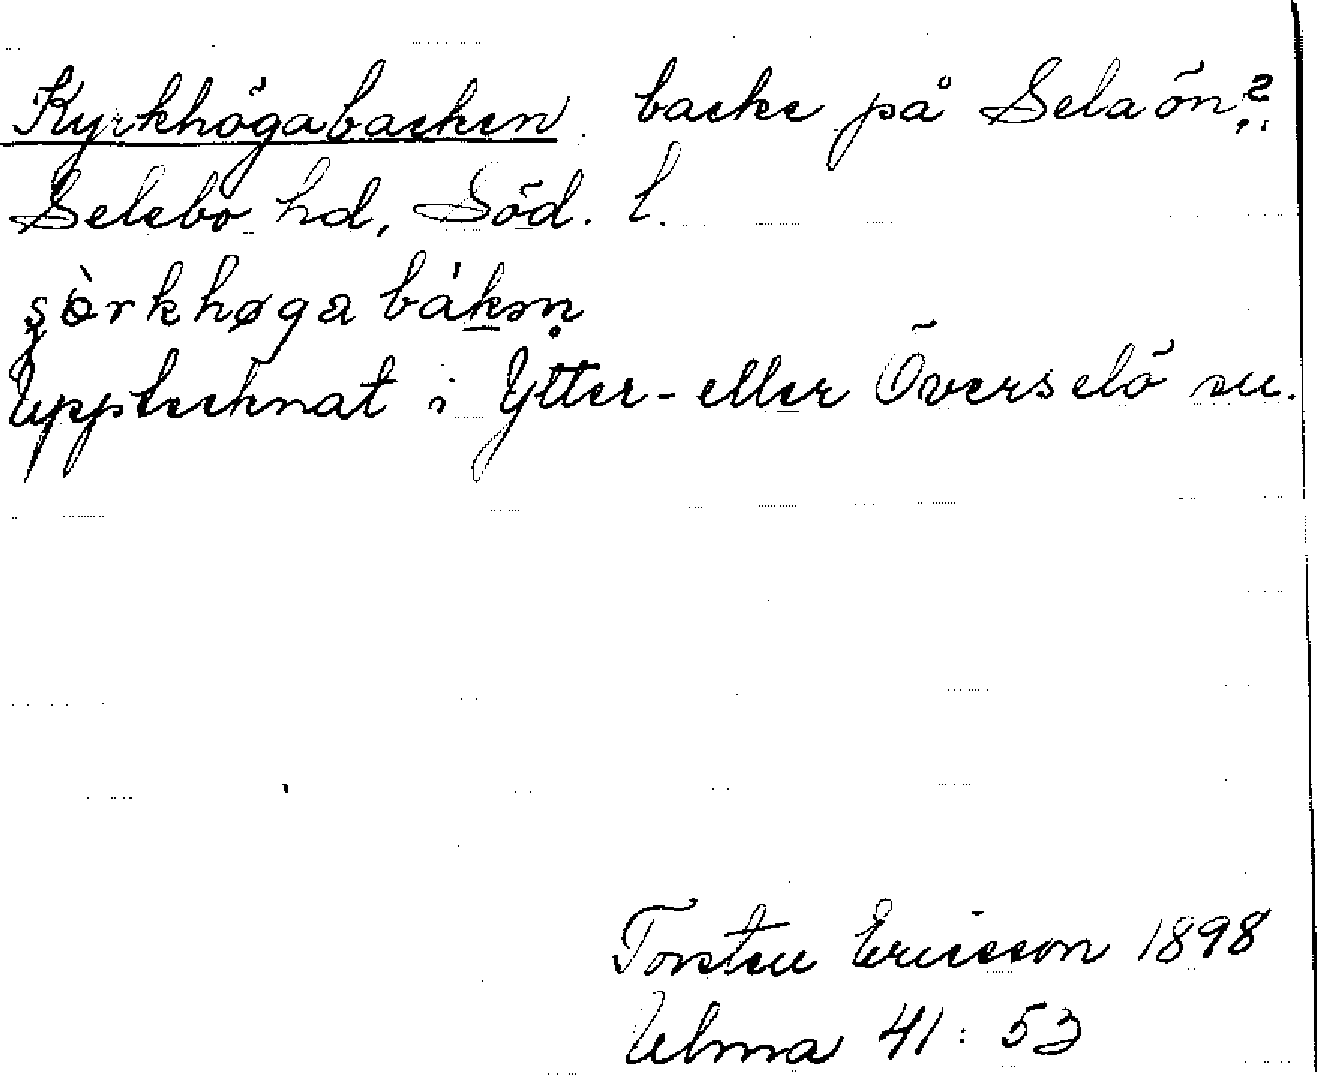 Kyrkhögabacken. backe på Selaön?
Selebo hd, Söd. l.
şòrkhøga bákən
Upptecknat i Ytter- eller Överselö sn.
Torsten Ericsson 1898
Ulma 41:53